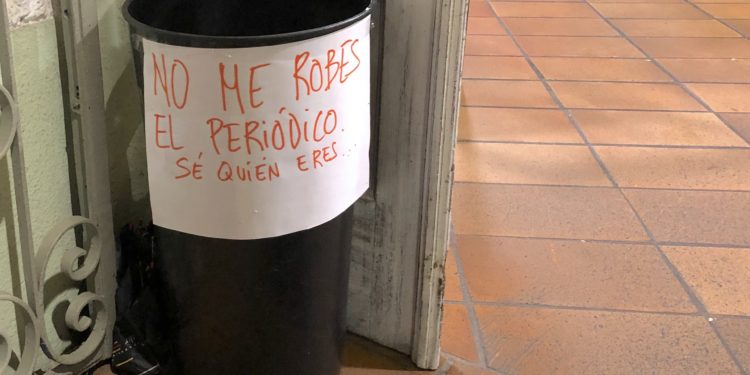 NO ME ROBES
EL PERIÓDICO.
SÉ QUIÉN ERES...